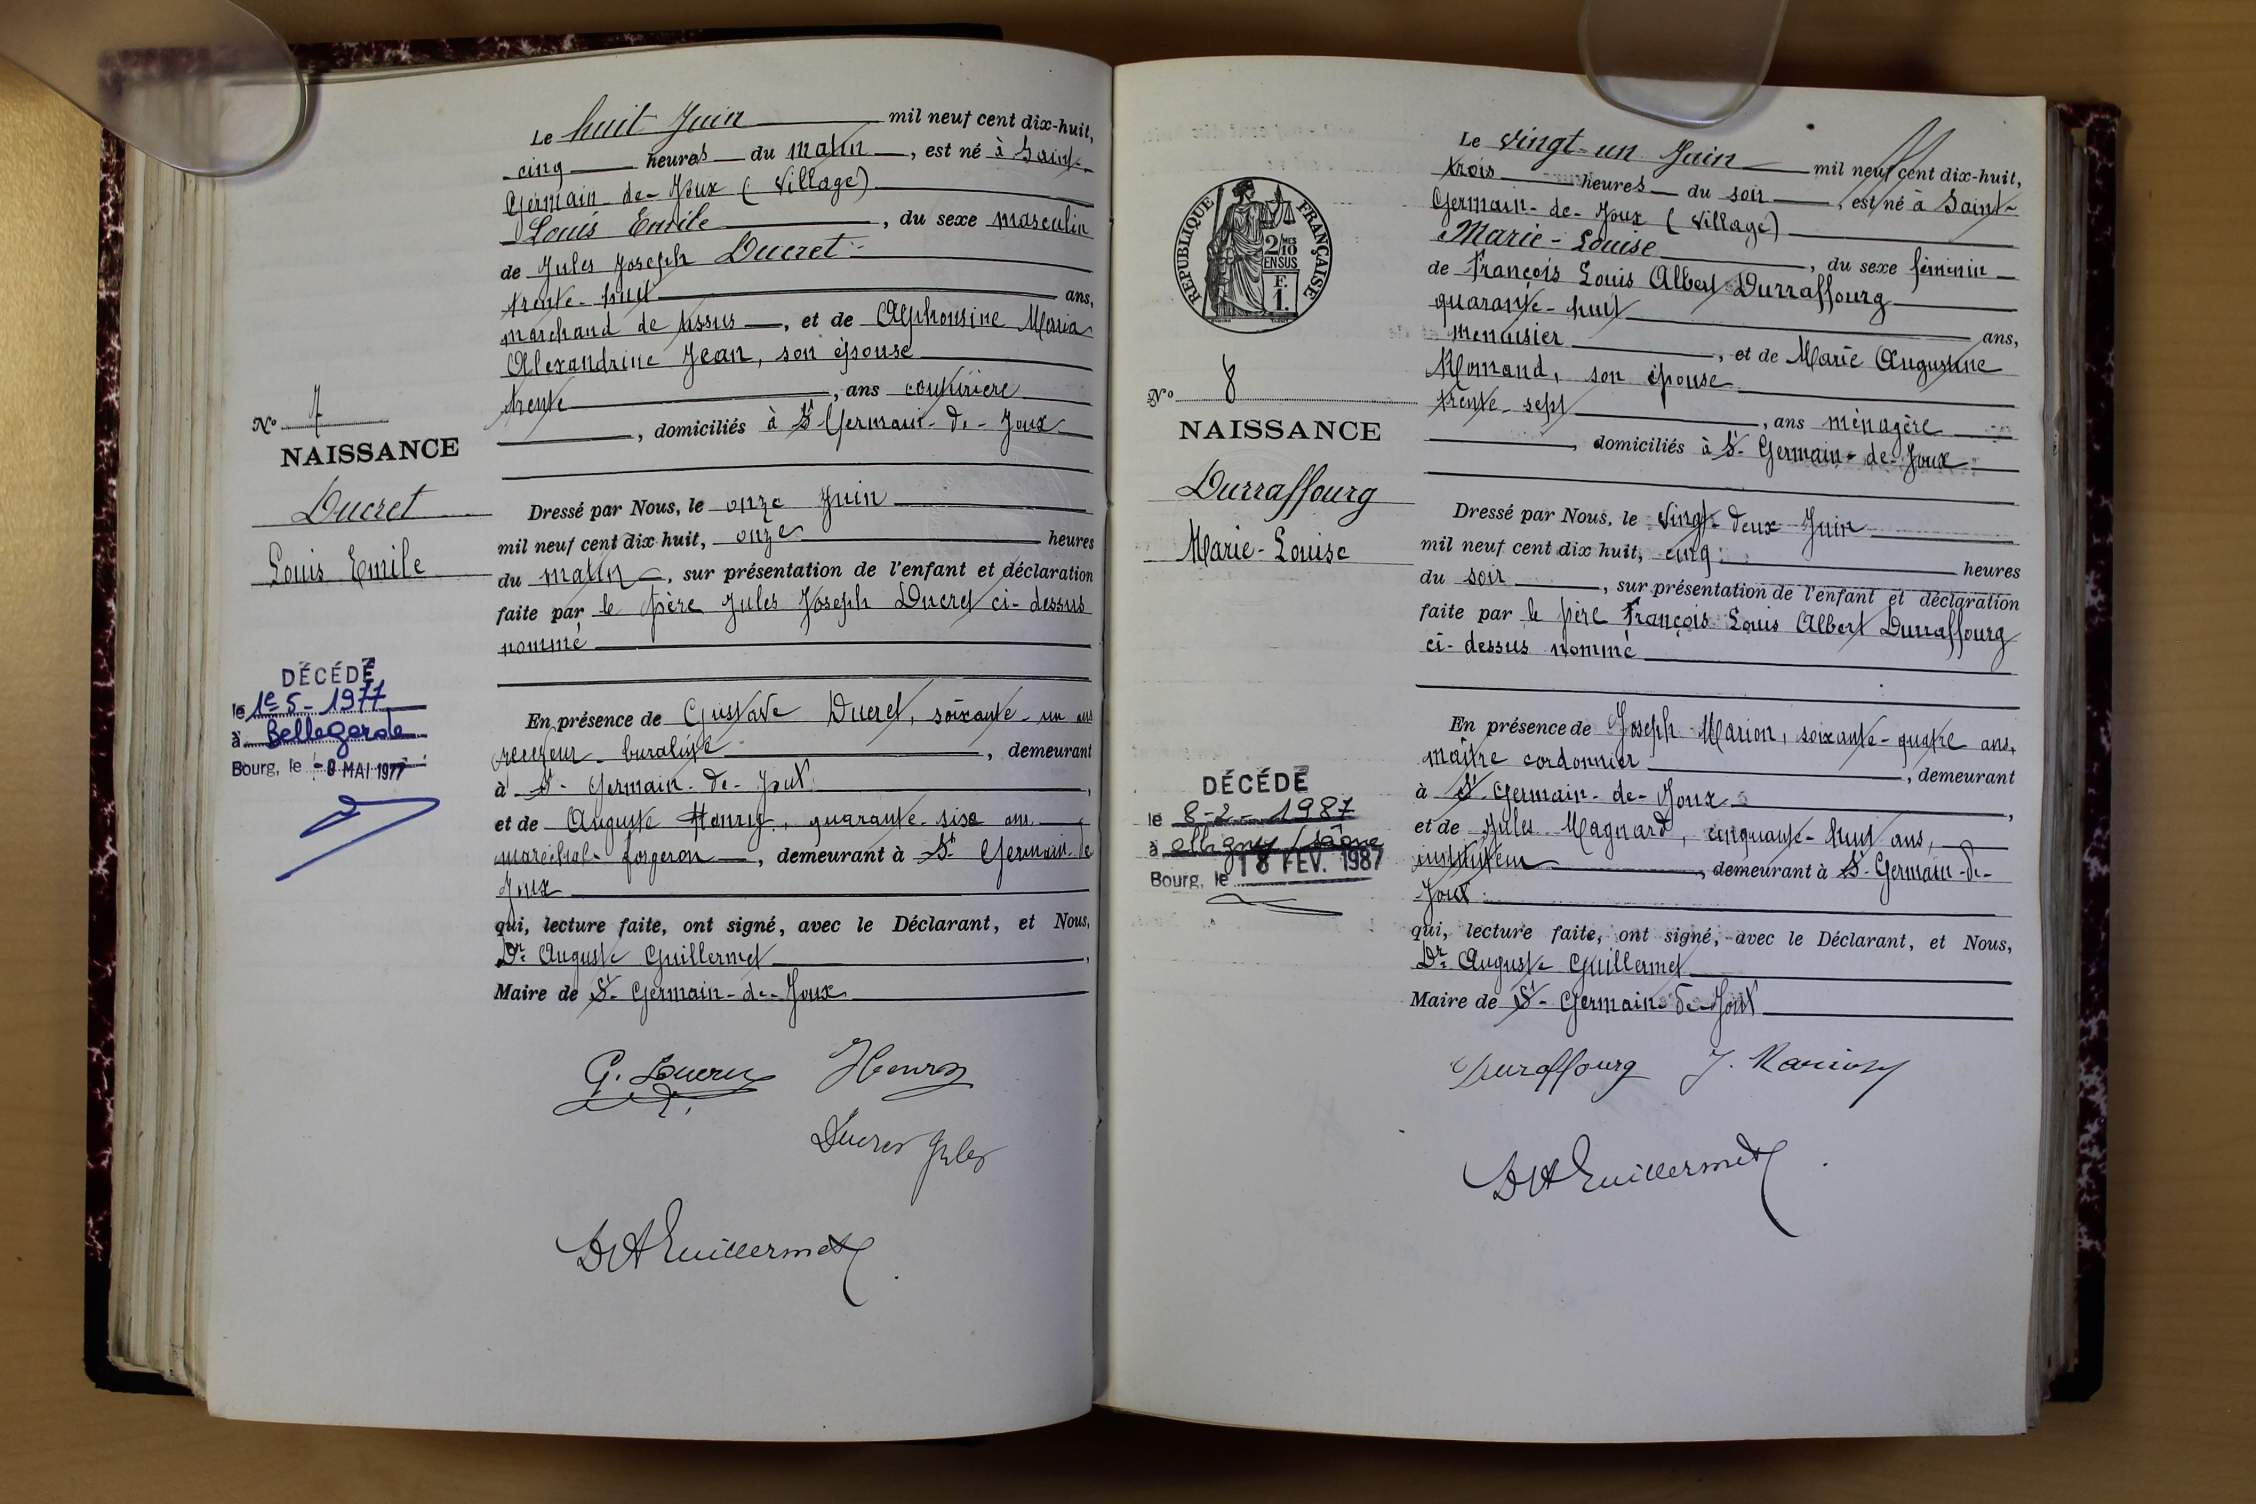 Le huit Juin mil neuf cent dix-huit,
cinq heures du matin, est né à Saint-
Germain-de-Joux (Village)
Louis Emile, du sexe masculin
de Jules Joseph Ducret
trente-huit ans,
marchand de tissus, et de Alphonsine Maria
Alexandrine Jean, son épouse
trente, ans couturière
, domiciliés à St-Germain-de-Joux
Dressé par Nous, le onze Juin
mil neuf cent dix huit, onze heures
du matin, sur présentation de l'enfant et déclaration
faite par le père Jules Joseph Ducret ci-dessus
nommé
En présence de Gustave Ducret, soixante-un ans
receveur buraliste, demeurant
à St-Germain-de-Joux,
et de Auguste Henry, quarante-six ans,
maréchal-forgeron, demeurant à St Germain-de
Joux
qui, lecture faite, ont signé, avec le Déclarant, et Nous,
Dr Auguste Guillermet,
Maire de St-Germain-de-Joux
No 7
NAISSANCE
Ducret
Louis Emile
DÉCÉDÉ
le 1e-5-1977
à Bellegarde
Bourg, le -8 MAI 1977
G. Ducret Henry
Ducret Jules
Dr A Guillermet
RÉPUBLIQUE FRANÇAISE
2/10 MES
EN SUS
F.
1.
No 8
NAISSANCE
Durraffourg
Marie-Louise
DÉCÉDÉ
le 8-2-1987
à
Bourg, le 18 FEV. 1987
Le vingt-un Juin mil neuf cent dix-huit,
trois heures du soir, est né à Saint-
Germain-de-Joux (Village)
Marie-Louise, du sexe féminin
de François Louis Albert Durraffourg
quarante-huit ans,
menuisier, et de Marie Augustine
Romand, son épouse
trente-sept, ans ménagère
, domiciliés à St-Germain-de-Joux
Dressé par Nous, le vingt-deux Juin
mil neuf cent dix huit, cinq heures
du soir, sur présentation de l'enfant et déclaration
faite par le père François Louis Albert Durraffourg
ci-dessus nommé
En présence de Joseph Marion, soixante-quatre ans,
maître cordonnier, demeurant
à St-Germain-de-Joux,
et de Jules Magnard, cinquante-huit ans,
instituteur, demeurant à St-Germain-de-
Joux
qui, lecture faite, ont signé, avec le Déclarant, et Nous,
Dr Auguste Guillermet
Maire de St-Germain-de-Joux
Duraffourg J. Marion
Dr A Guillermet